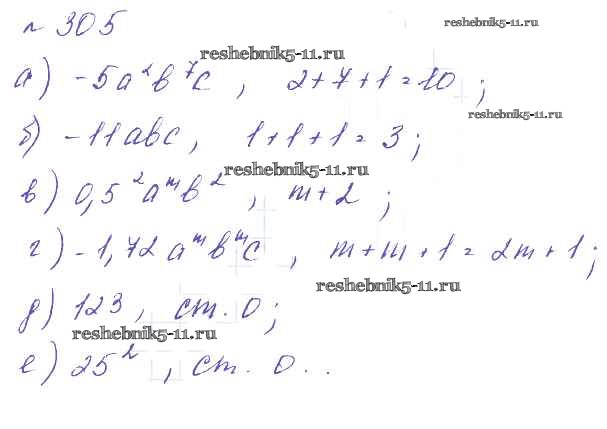 № 305
reshebnik5-11.ru
reshebnik5-11.ru
а) -5a²b⁷c, 2+7+1=10;
reshebnik5-11.ru
б) -11abc, 1+1+1=3;
reshebnik5-11.ru
в) 0,5²aᵐb², m+2;
г) -1,72aᵐbᵐc, m+m+1=2m+1;
reshebnik5-11.ru
д) 123, ст. 0;
reshebnik5-11.ru
е) 25², ст. 0..